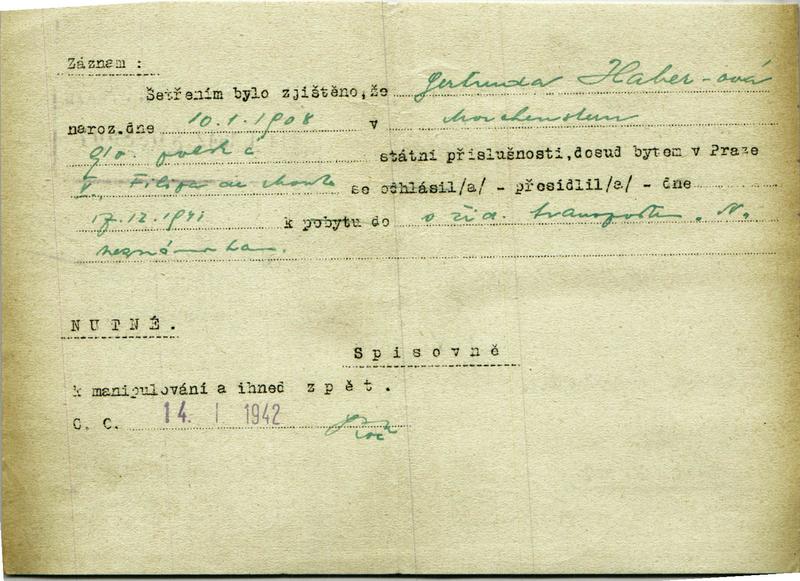 Záznam :
Šetřením bylo zjištěno,že Gertruda Haber-ová
naroz.dne 10.1.1908 v Morchenstern
státní příslušnosti,dosud bytem v Praze
V, Filipa de Monte se odhlásil/a/ - přesídlil/a/ - dne
17.12.1941 k pobytu do s žid. transportem "N"
neznámo kam.
NUTNÉ.
Spisovně
k manipulování a ihned zpět.
C. C. 14. I 1942